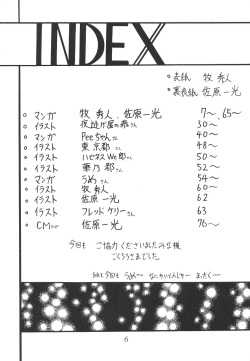 INDEX
○表紙 牧 秀人
○裏表紙 佐原一光
○ マンガ 牧 秀人、佐原一光 7〜、65〜
○ イラスト 夜逃げ屋の恭さん 30〜
○ マンガ Peeちゃん 40〜
○ イラスト 東 京都さん 48〜
○ イラスト ハセネスWe郎さん 50〜
○ イラスト 華乃 郡さん 52〜
○ マンガ うめっさん 54〜
○ イラスト 牧 秀人 60
○ イラスト 佐原 一光 62
○ イラスト フレッドケリーさん 63
○ CMマンガ 佐原 一光 76〜
今回も ご協力くださいましたみな様
ごくろうさまでした
6